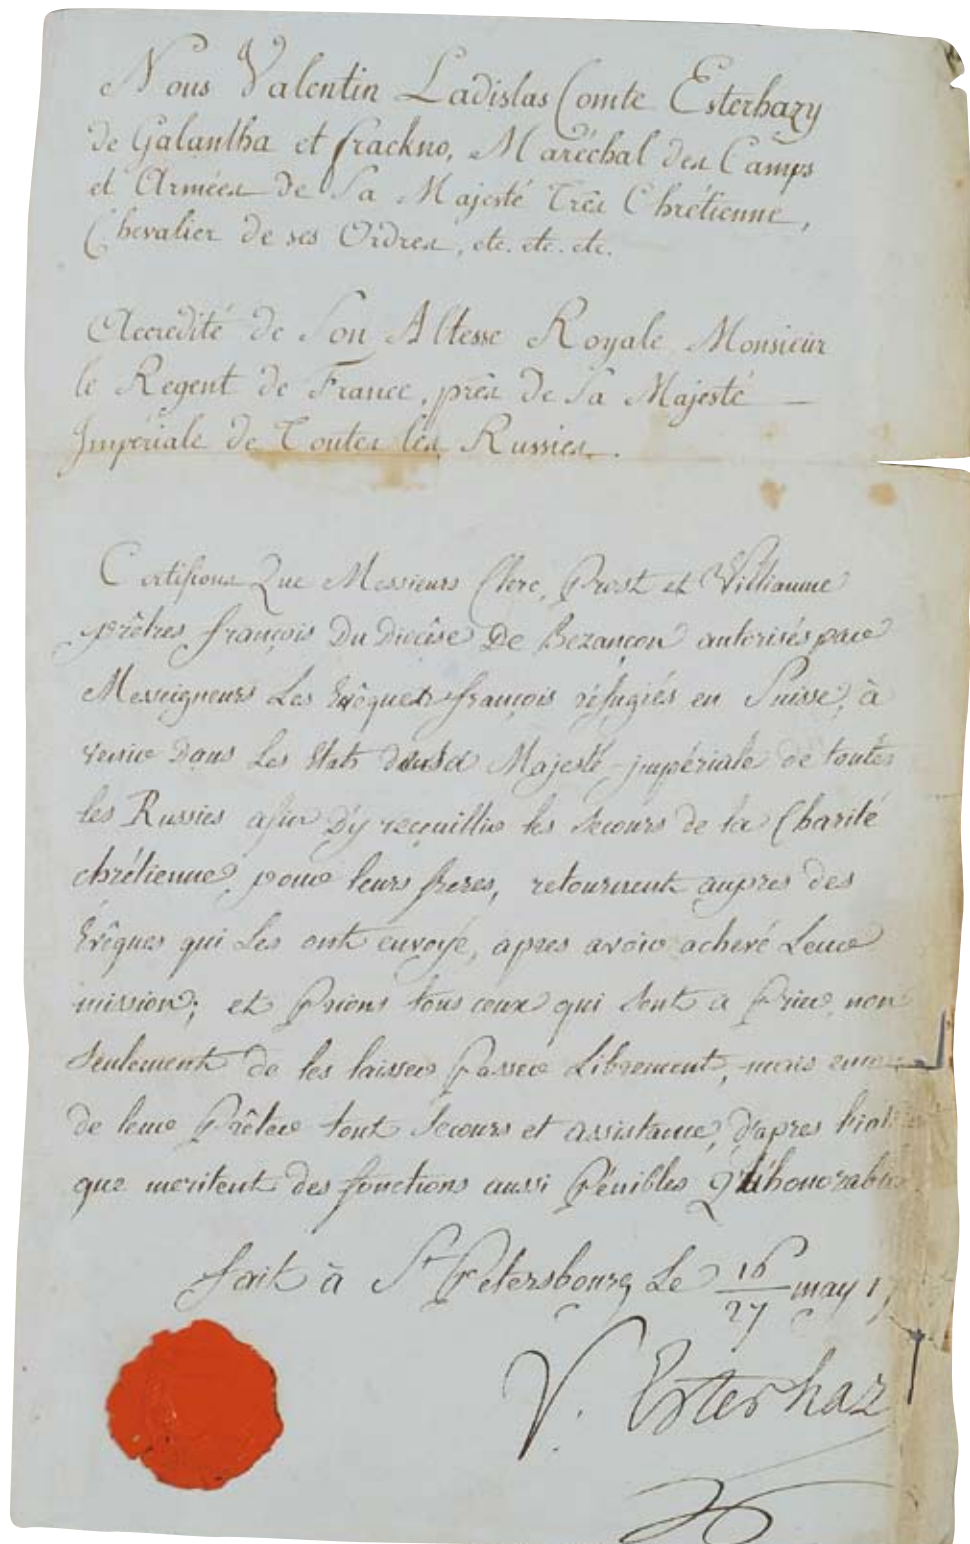 Nous Valentin Ladislas Comte Esterhazy
de Galantha et frackno, Maréchal des Camps
et Armées de Sa Majesté Très Chrétienne,
Chevalier de ses Ordres, etc. etc. etc.
Accrédité de Son Altesse Royale Monsieur
le Regent de France, près de Sa Majesté
Impériale de Toutes les Russies.
Certifions Que Messieurs Clerc, Prost et Villiaume
prêtres françois Du diocèse De Bezançon autorisés par
Messeigneurs Les Evêques françois réfugiés en Suisse, à
venir dans Les Etats de Sa Majesté impériale de toutes
les Russies afin D'y recueillir les secours de la Charité
chrétienne, pour leurs freres, retournent aupres des
Evêques qui Les ont envoyé, apres avoir achevé Leur
mission; et Prions tous ceux qui sont a Prier, non
seulement de les laisser Passer Librement, mais
de leur Prêter tout secours et assistance, d'apres
que meritent des fonctions aussi Pénibles Qu'honorables
fait à St Petersbourg Le 16/27 may 1
V. Esterhaz